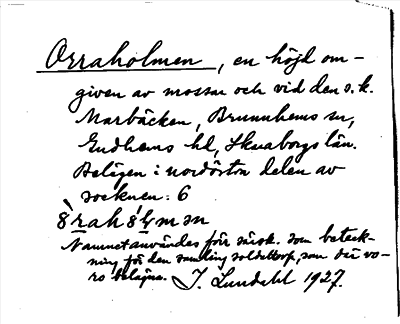 Orraholmen, en höjd om-
given av mossar och vid den s.k.
Marbäcken, Brunnhems sn,
Gudhems hd, Skaraborgs län.
Belägen i nordöstra delen av
socknen: 6
Namnet användes förr särsk. som beteck-
ning för den samling soldattorp, som där vo-
ro belägna. J. Lundahl 1927.